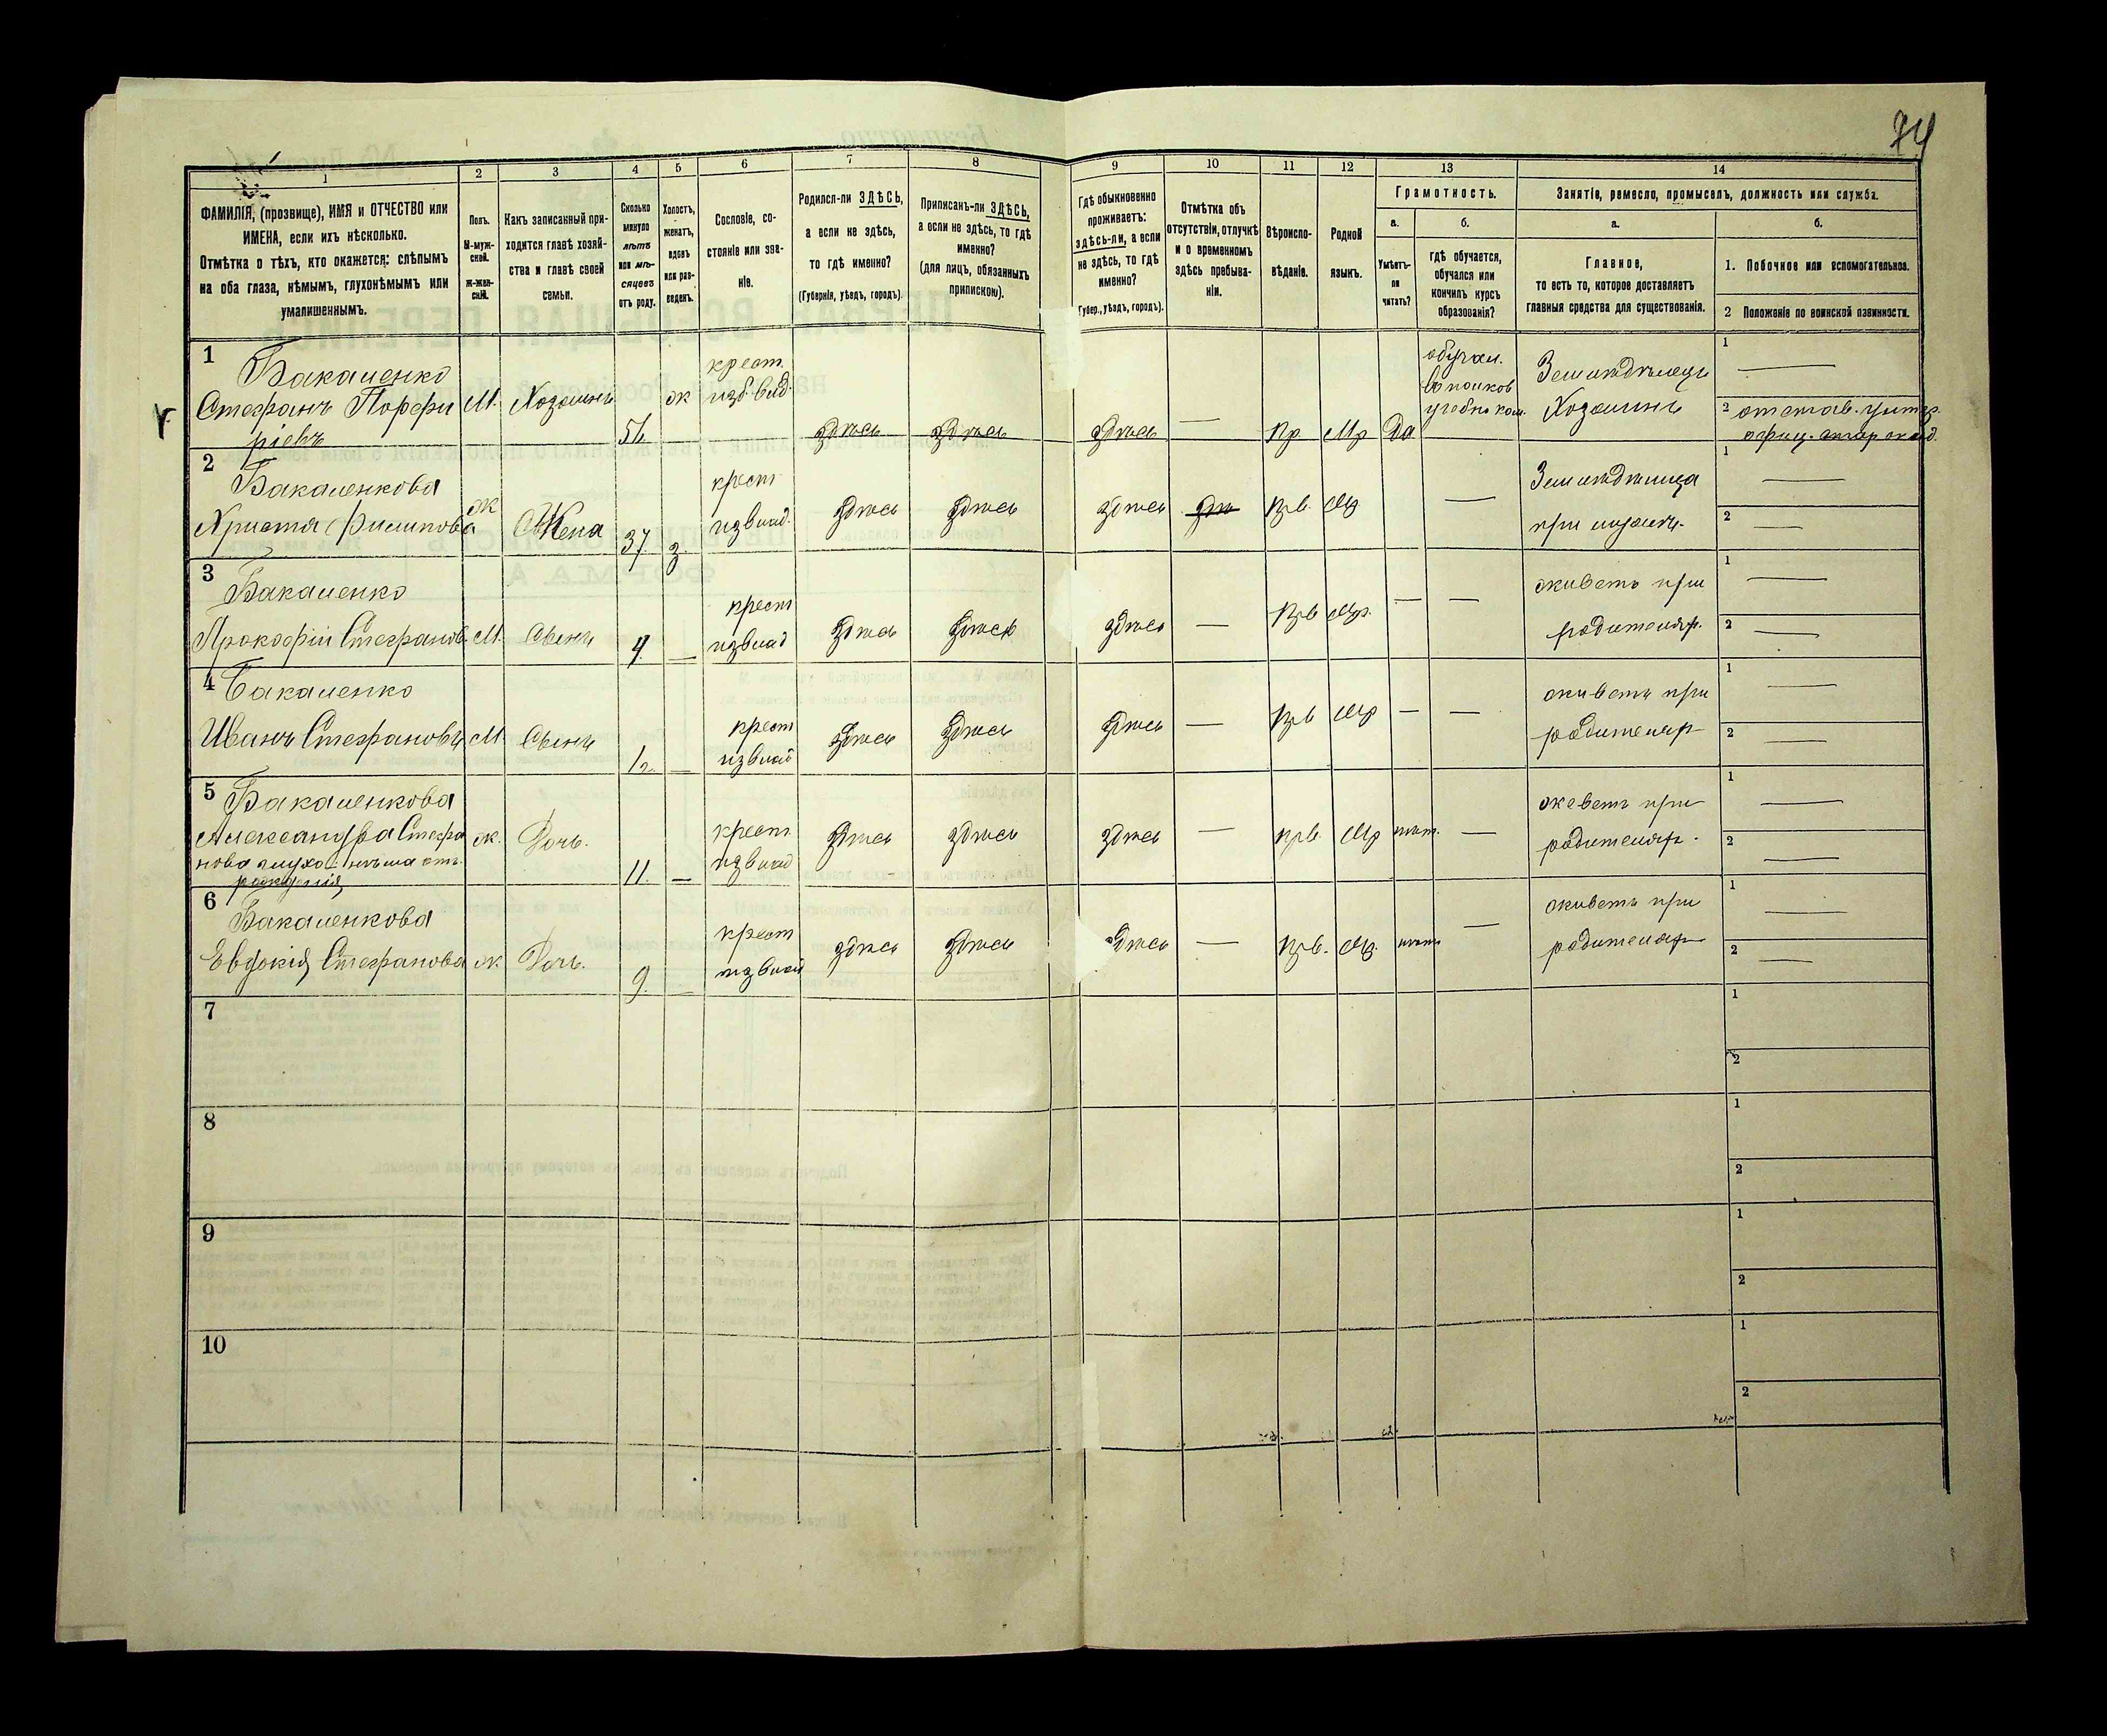 74
1
2
3
4
5
6
7
8
9
10
11
12
13
14
ФАМИЛІЯ, (прозвище), ИМЯ и ОТЧЕСТВО или
ИМЕНА, если ихъ нѣсколько.
Отмѣтка о тѣхъ, кто окажется: слѣпымъ
на оба глаза, нѣмымъ, глухонѣмымъ или
умалишеннымъ.
Полъ.
М-муж-
ской.
ж-жен-
скій.
Какъ записанный при-
ходится главѣ хозяй-
ства и главѣ своей
семьи.
Сколько
минуло
лѣтъ
или мѣ-
сяцевъ
отъ роду.
Холостъ,
женатъ,
вдовъ
или раз-
веденъ.
Сословіе, со-
стояніе или зва-
ніе.
Родился-ли ЗДѢСЬ,
а если не здѣсь,
то гдѣ именно?
(Губернія, уѣздъ, городъ).
Приписанъ-ли ЗДѢСЬ,
а если не здѣсь, то гдѣ
именно?
(для лицъ, обязанныхъ
припискою).
Гдѣ обыкновенно
проживаетъ:
здѣсь-ли, а если
не здѣсь, то гдѣ
именно?
Губер., уѣздъ, городъ).
Отмѣтка объ
отсутствіи, отлучкѣ
и о временномъ
здѣсь пребыва-
ніи.
Вѣроиспо-
вѣданіе.
Родной
языкъ.
Грамотность.
а.
Умѣетъ-
ли
читать?
б.
гдѣ обучается,
обучался или
кончилъ курсъ
образованія?
Занятіе, ремесло, промыселъ, должность или служба.
а.
Главное,
то есть то, которое доставляетъ
главныя средства для существованія.
б.
1. Побочное или вспомогательное.
2 Положеніе по воинской повинности.
1
Бакаленко
Стефанъ Порфи
ріевъ
М.
Хозяинъ
ж
крест.
изъ влад.
здѣсь
здѣсь
здѣсь
—
Пр
Мр
Да
обучал.
въ полков
учебн. ком.
Земледѣлецъ
Хозяинъ
1 —
2 отстав. унтер.
офиц.
2
Бакаленкова
Христя Филипова
ж
Жена
37
з.
крест
изъ влад.
здѣсь
здѣсь
здѣсь
Прв.
Мр.
—
Земледѣлица
при
1 —
2 —
3
Бакаленко
Прокофій Стефановъ
М.
Сынъ
4.
—
крест
изъ влад
здѣсь
здѣсь
здѣсь
—
Прв
Мр.
—
—
живетъ при
родителях.
1 —
2 —
4
Бакаленко
Иванъ Стефановъ
М
Сынъ
1/2.
—
крест
изъ влад
здѣсь
здѣсь
здѣсь
—
Прв
Мр
—
—
живетъ при
родителях
1 —
2 —
5
Бакаленкова
Александра Стефа
нова глухо-нѣма отъ
рожденія
ж.
Дочь.
11.
—
крест.
изъ влад
здѣсь
здѣсь
здѣсь
—
прв.
Мр
нѣт.
—
живетъ при
родителях.
1 —
2 —
6
Бакаленкова
Евдокія Стефанова
ж.
Дочь.
9.
—
крест
изъ влад
здѣсь
здѣсь
здѣсь
—
Прв.
Мр.
нѣт
—
живетъ при
родителях
1 —
2 —
7
1
2
8
1
2
9
1
2
10
1
2